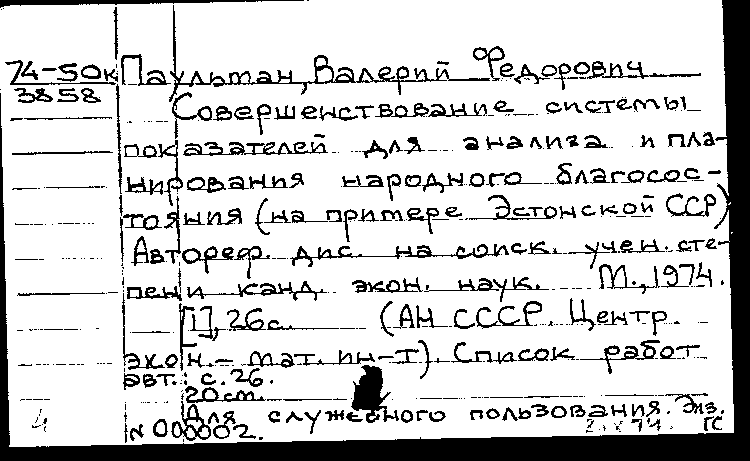 74-50к Паульман, Валерий Федорович.
3858
Совершенствование системы
показателей для анализа и пла-
нирования народного благосос-
тояния (на примере Эстонской ССР)
Автореф. дис. на соиск. учен. сте-
пени канд. экон. наук. М., 1974.
[1], 26с. (АН СССР. Центр.
экон.-мат. ин-т). Список работ
авт.: с.26.
20 см.
Для служебного пользования. Экз.
N 000002.
4
ГС